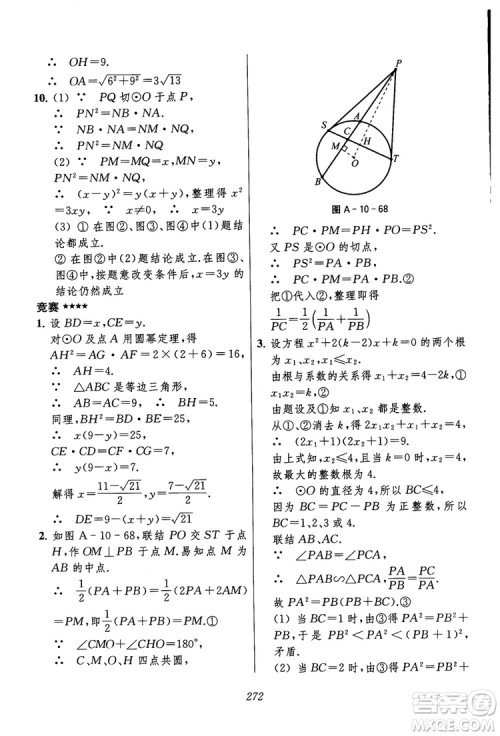 ∴ OH=9.
∴ OA=√(6²+9²)=3√13
10. (1) ∵ PQ切⊙O于点P,
∴ PN²=NB·NA.
∵ NB·NA=NM·NQ,
∴ PN²=NM·NQ.
(2) ∵ PM=MQ=x,
PN=y,PN²=NM·NQ,
∴ (x-y)²=y(x+y),整理得 x²
=3xy ∵ x≠0, ∴ x=3y
(3) ① 在图②、图③、图④中(1)题结
论都成立.
② 在图②、图③、图④中(2)题结论
不成立,按题意改变条件后,(2)的
结论仍然成立
竞赛 ★★★★
1. 设 BD=x,CE=y.
对⊙O及点A用圆幂定理,得
AH²=AF·AG=2×(2+6)=16,
∴ AH=4.
∵ △ABC是等边三角形,
∴ AB=AC=AH+HC=9.
同理,BH²=BD·BE=25,
∴ x(9-y)=25.
CE·CD=CF·CG=9,
∴ y(9-x)=9.
解得 x=(11-√21)/2,y=(7-√21)/2.
∴ DE=9-(x+y)=√21
2. 如图A-10-68,联结PO交ST于点
H,作OM⊥PB于点M.易知M为
AB的中点.
∴ 1/2(PA+PB)=1/2(PA+PA+
AB)=1/2(2PA+2AM)=PA+
AM=PM.
∵ ∠CMO+∠CHO=180°,
∴ C、M、O、H四点共圆,
P
S
A
C
H
M
T
B
O
图A-10-68
∴ PC·PM=PH·PO.①
又 PS是⊙O的切点,
∴ PA·PB=PS²=PH·PO.②
把①代入②并整理即得
1/PC=1/2(1/PA+1/PB)
3. 设方程 x²+2(k-2)x+k=0的两个根
为 x₁、x₂,x₁≤x₂.
由根与系数的关系得 x₁+x₂=4-2k,①
x₁x₂=k.②
由题设及①知 x₁、x₂都是整数.
从①、②消去k,得2x₁x₂+x₁+x₂=4,
∴ (2x₁+1)(2x₂+1)=9.
由上式知,x₂=4,且当k=0时,x₂=4,
故最大的整数根为4.
∴ ⊙O的直径为4,所以BC≤4.
因为BC=PC-PB为正整数,所以
BC=1、2、3或4.
∵ ∠PAB=∠PCA,
∴ △PAB∽△PCA,PA/PB=PC/PA.
故PA²=PB(PB+BC).③
(1) 当BC=1时,由③得,PA²=PB²+
PB,∴ PB²＜PA²＜(PB+1)²,
矛盾.
(2) 当BC=2时,由③得,PA²=PB²+
272
答案圈